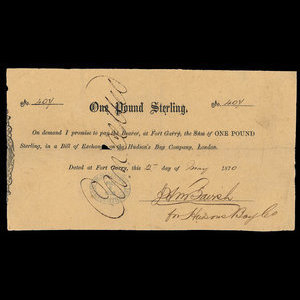 No. 404 No. 404
One Pound Sterling.
On demand I promise to pay the Bearer, at Fort Garry, the Sum of ONE POUND
Sterling, in a Bill of Exchange on the Hudson's Bay Company, London.
Dated at Fort Garry, this 2nd day of May 1870
Cancelled
for Hudsons Bay Co